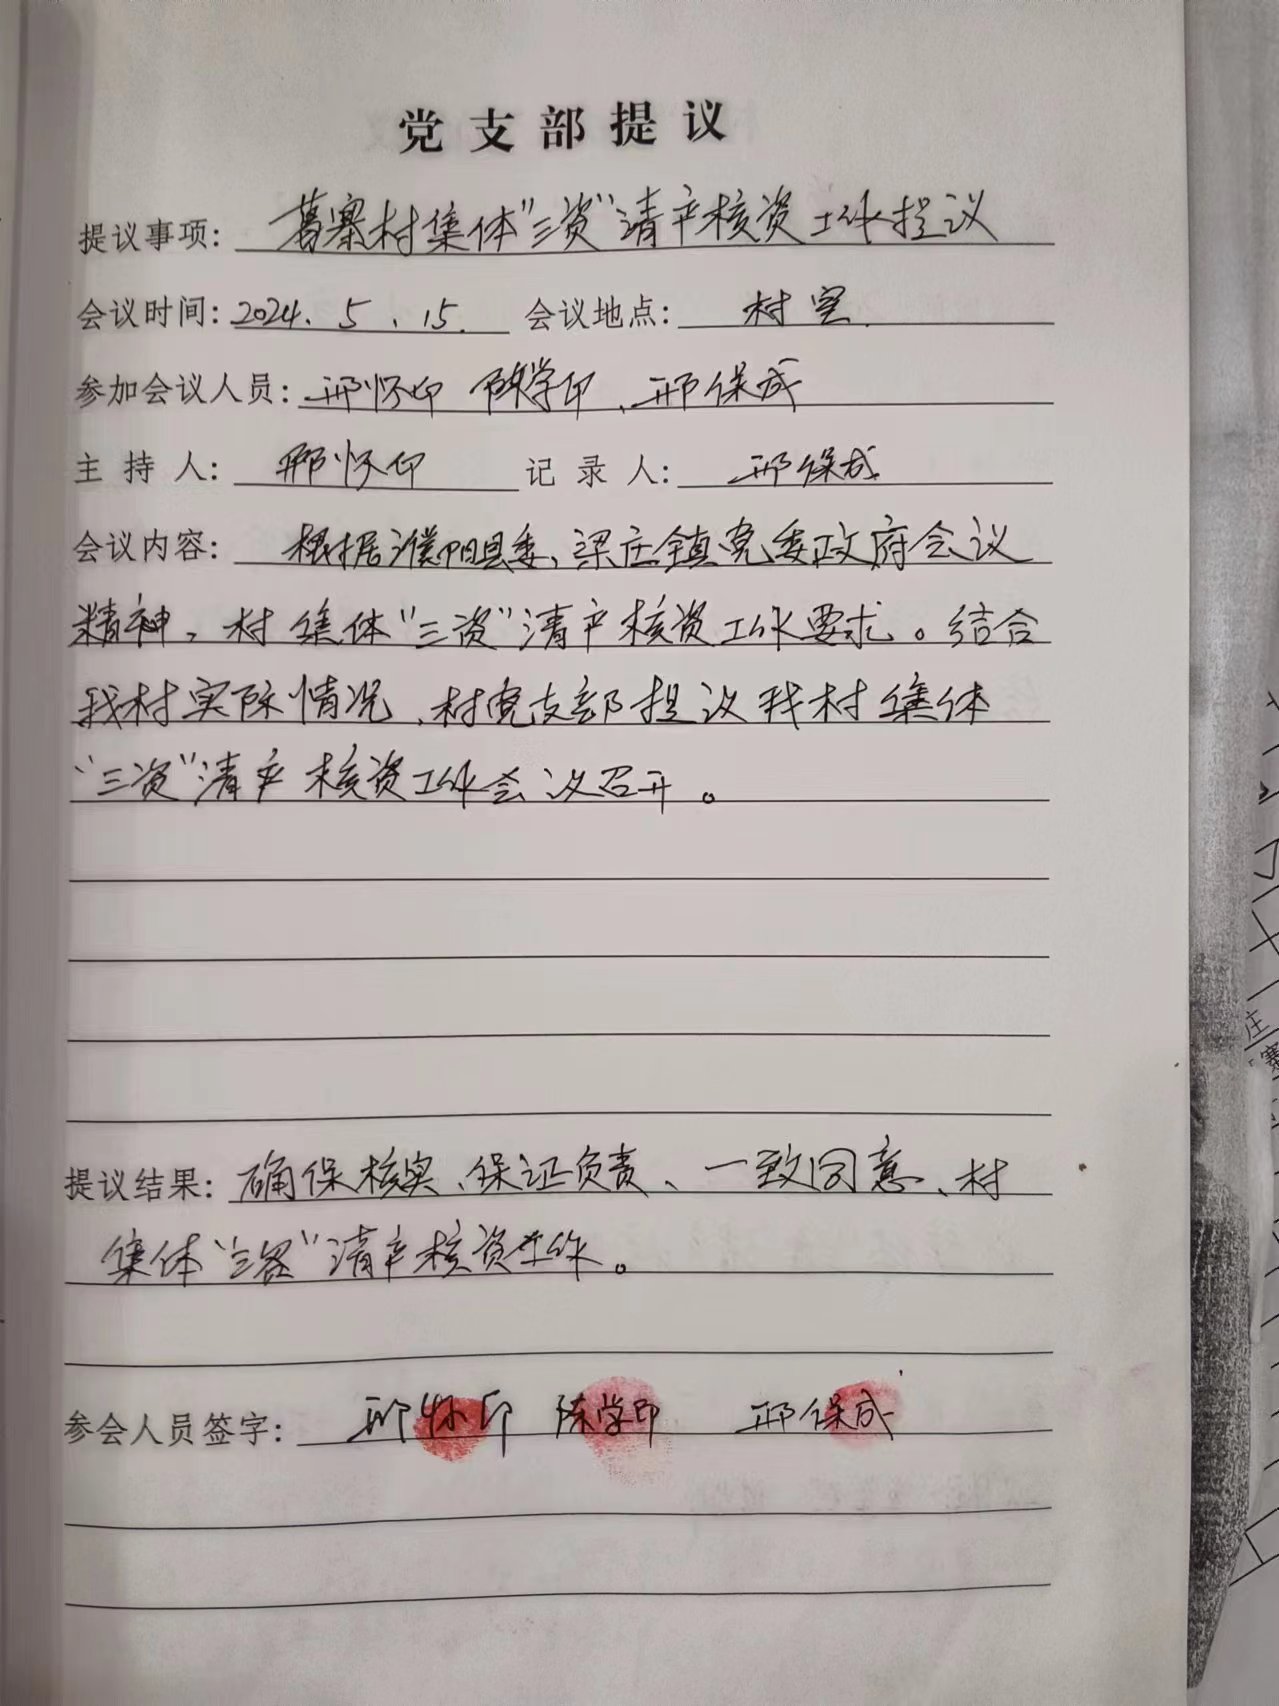 党支部提议
提议事项: 葛寨村集体“三资”清产核资工作提议
会议时间: 2024.5.15. 会议地点: 村室.
参加会议人员: 邢怀印 陈学印、邢保成
主持人: 邢怀印 记录人: 邢保成
会议内容: 根据濮阳县委、梁庄镇党委政府会议
精神,村集体“三资”清产核资工作要求。结合
我村实际情况,村党支部提议我村集体
“三资”清产核资工作会议召开。
提议结果: 确保核实、保证负责、一致同意、村
集体“三资”清产核资工作。
参会人员签字: 邢怀印 陈学印 邢保成
庄
寨